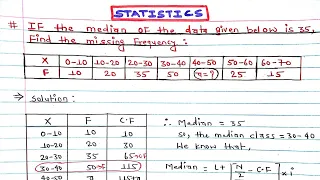 STATISTICS
# IF the median of the data given below is 35,
Find the missing Frequency:
X 0-10 10-20 20-30 30-40 40-50 50-60 60-70
F 10 20 35 50 (x=?) 25 15
⇒ Solution:
X F C.F ∴ Median = 35
0-10 10 10 So, the median class = 30-40
10-20 20 30 We know that,
20-30 35 65→CF
30-40 50→F 115 Median = L + [N/2 - C.F] × i
40-50 x 115+x